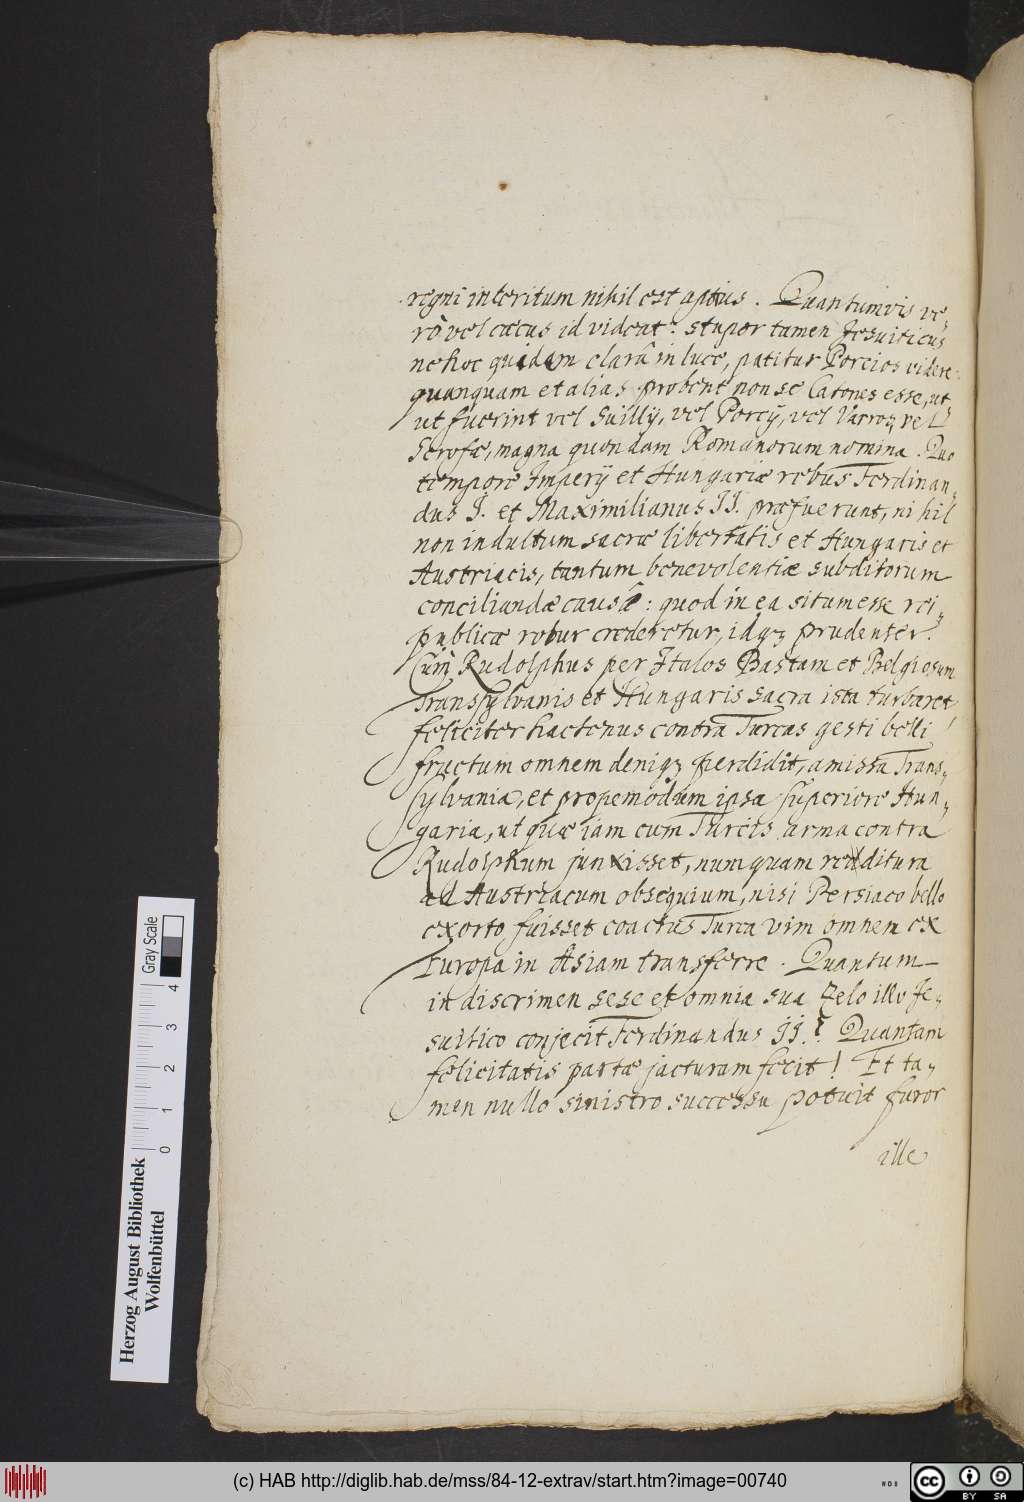 regni interitum nihil est aptius. Quantumvis ve,
rò vel cæcus id videat: stupor tamen Jesuiticus
ne hoc quidem clarâ in luce, patitur Porcios videre:
quanquam et alias probent non se Catones esse, ut
ut fuerint vel Suillÿ, vel Porcÿ, vel Varroz, vel
Scrofæ, magna quondam Romanorum nomina. Quo
tempore Imperÿ et Hungariæ rebus Ferdinan,
dus I. et Maximilianus II. præfuerunt, nihil
non indultum sacræ libertatis et Hungaris et
Austriacis, tantum benevolentiæ subditorum
conciliandæ causâ: quod in ea situm esse rei,
publicæ robur crederetur, idqz prudenter.
Cùm Rudolphus per Italos Bastam et Belgiosum
Transsylvanis et Hungaris sacra ista turbaret,
feliciter hactenus contra Turcas gesti belli
fructum omnem deniqz perdidit, amissa Trans,
sylvania, et propemodum ipsa superiore Hun,
garia, ut quæ iam cum Turcis arma contra
Rudolphum junxisset, numquam redditura
ad Austriacum obsequium, nisi Persiaco bello
exorto fuisset coactus Turca vim omnem ex
Europa in Asiam transferre. Quantum
in discrimen sese et omnia sua Zelo illo Je,
suitico conjecit Ferdinandus II.? Quantam
felicitatis partæ jacturam fecit! Et ta,
men nullo sinistro successu potuit furor
ille
Herzog August Bibliothek
Wolfenbüttel
0 1 2 3 4
Gray Scale
(c) HAB http://diglib.hab.de/mss/84-12-extrav/start.htm?image=00740
WDB
cc BY SA